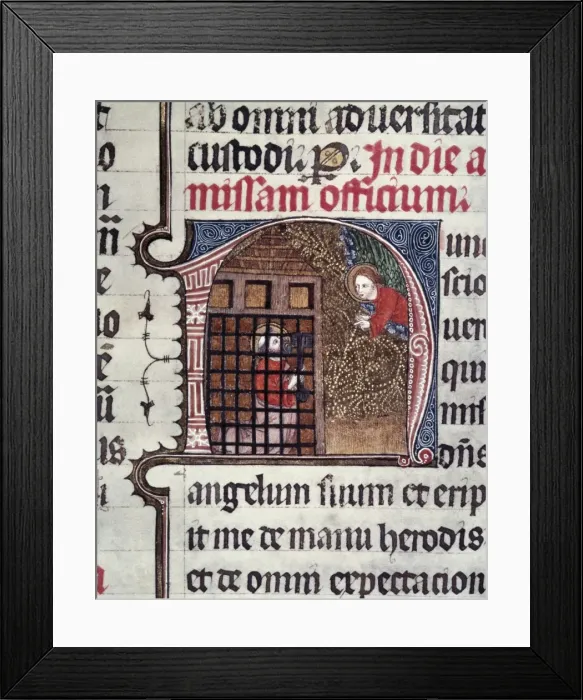 ab omni aduersitat
custodi. P. In die a
missam officium.
N unc
scio
uere
qui
mis
dn̄s
angelum suum et erip
it me de manu herodis
et de omni expectacion